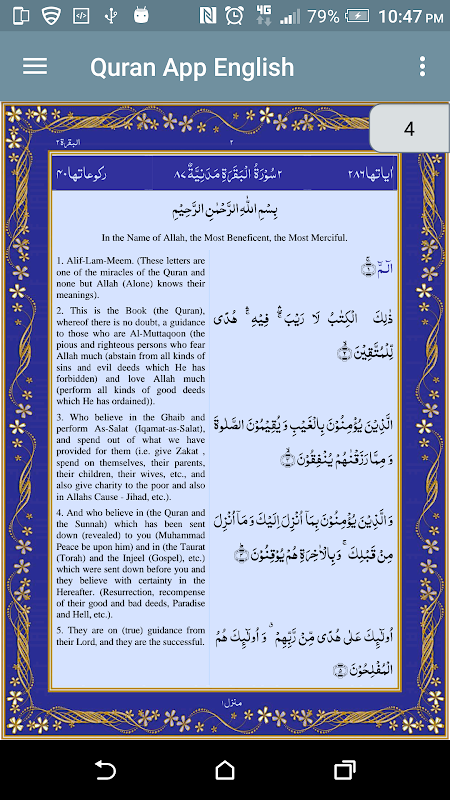 4G 79% 10:47 PM
Quran App English
4
البقرة ٢
٢
اٰیاتها ٢٨٦
٢ سُوْرَةُ الْبَقَرَةِ مَدَنِيَّةٌ ٨٧
ركوعاتها ٤٠
بِسْمِ اللّٰهِ الرَّحْمٰنِ الرَّحِيْمِ
In the Name of Allah, the Most Beneficent, the Most Merciful.
1. Alif-Lam-Meem. (These letters are
one of the miracles of the Quran and
none but Allah (Alone) knows their
meanings).
الٓمّٓ ۚ ﴿١﴾
2. This is the Book (the Quran),
whereof there is no doubt, a guidance
to those who are Al-Muttaqoon (the
pious and righteous persons who fear
Allah much (abstain from all kinds of
sins and evil deeds which He has
forbidden) and love Allah much
(perform all kinds of good deeds
which He has ordained)).
ذٰلِكَ الْكِتٰبُ لَا رَيْبَ ۛ فِيْهِ ۛ هُدًى
لِّلْمُتَّقِيْنَ ﴿٢﴾
3. Who believe in the Ghaib and
perform As-Salat (Iqamat-as-Salat),
and spend out of what we have
provided for them (i.e. give Zakat ,
spend on themselves, their parents,
their children, their wives, etc., and
also give charity to the poor and also
in Allahs Cause - Jihad, etc.).
الَّذِيْنَ يُؤْمِنُوْنَ بِالْغَيْبِ وَ يُقِيْمُوْنَ الصَّلٰوةَ
وَ مِمَّا رَزَقْنٰهُمْ يُنْفِقُوْنَ ﴿٣﴾
4. And who believe in (the Quran and
the Sunnah) which has been sent
down (revealed) to you (Muhammad
Peace be upon him) and in (the Taurat
(Torah) and the Injeel (Gospel), etc.)
which were sent down before you and
they believe with certainty in the
Hereafter. (Resurrection, recompense
of their good and bad deeds, Paradise
and Hell, etc.).
وَ الَّذِيْنَ يُؤْمِنُوْنَ بِمَاۤ اُنْزِلَ اِلَيْكَ وَ مَاۤ اُنْزِلَ
مِنْ قَبْلِكَ ۚ وَ بِالْاٰخِرَةِ هُمْ يُوْقِنُوْنَ ﴿٤﴾
5. They are on (true) guidance from
their Lord, and they are the successful.
اُولٰٓئِكَ عَلٰى هُدًى مِّنْ رَّبِّهِمْ ۗ وَ اُولٰٓئِكَ هُمُ
الْمُفْلِحُوْنَ ﴿٥﴾
منزل ا